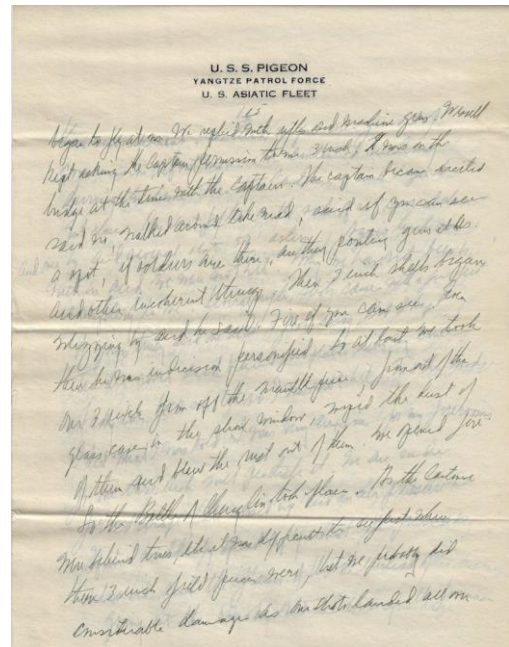 U. S. S. PIGEON
YANGTZE PATROL FORCE
U. S. ASIATIC FLEET
15
began to fly at us. We replied with rifles and machine guns.
kept asking the Captain permission to use 3 inch. I was on the
bridge at the time with the Captain. The captain became excited
said no, walked around like mad, said if you can see
a spot, if soldiers are there, are they pointing guns
and other incoherent things. Then 3 inch shells began
whizzing by and he said Fire if you can see, even
then he was indecision personified. So at last we took
our 3 inch
glass cover in the show window wiped the dust
of them and blew the rust out of them. We opened fire
So the Battle of took place. As the
were behind trees etc it was difficult to see just where
their 3 inch field pieces were, but we probably did
considerable damage as our shots landed all over